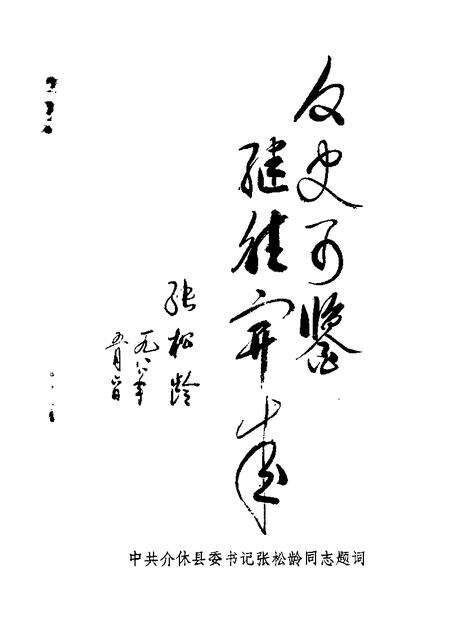 文史可鉴
继往开来
张松龄
一九八八年
五月
中共介休县委书记张松龄同志题词